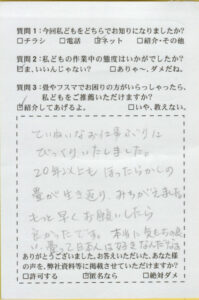 質問1:今回私どもをどちらでお知りになりましたか?
□チラシ □電話 ☑ネット □紹介・その他
質問2:私どもの作業中の態度はいかがでしたか?
☑ま、いいんじゃない? □ありゃ~、ダメだね。
質問3:畳やフスマでお困りの方がいらっしゃったら、
私どもをご推薦いただけますか?
☑紹介してあげるよ。 □いや、教えない。
ていねいなお仕事ぶりに
びっくりいたしました。
20年以上もほったらかしの
畳が生き返り、みちがえました。
もっと早くお願いしたら
よかったです。本当に気もちの良
い、畳って日本人は好きなんだなぁ
ありがとうございました。お答えいただいた、あなた様
の声を、弊社資料等に掲載させていただけますか?
□許可する ☑匿名なら □絶対ダメ